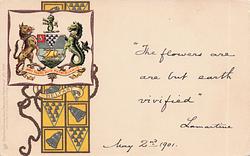 "The flowers are
are but earth
vivified"
Lamartine
May 2nd 1901.